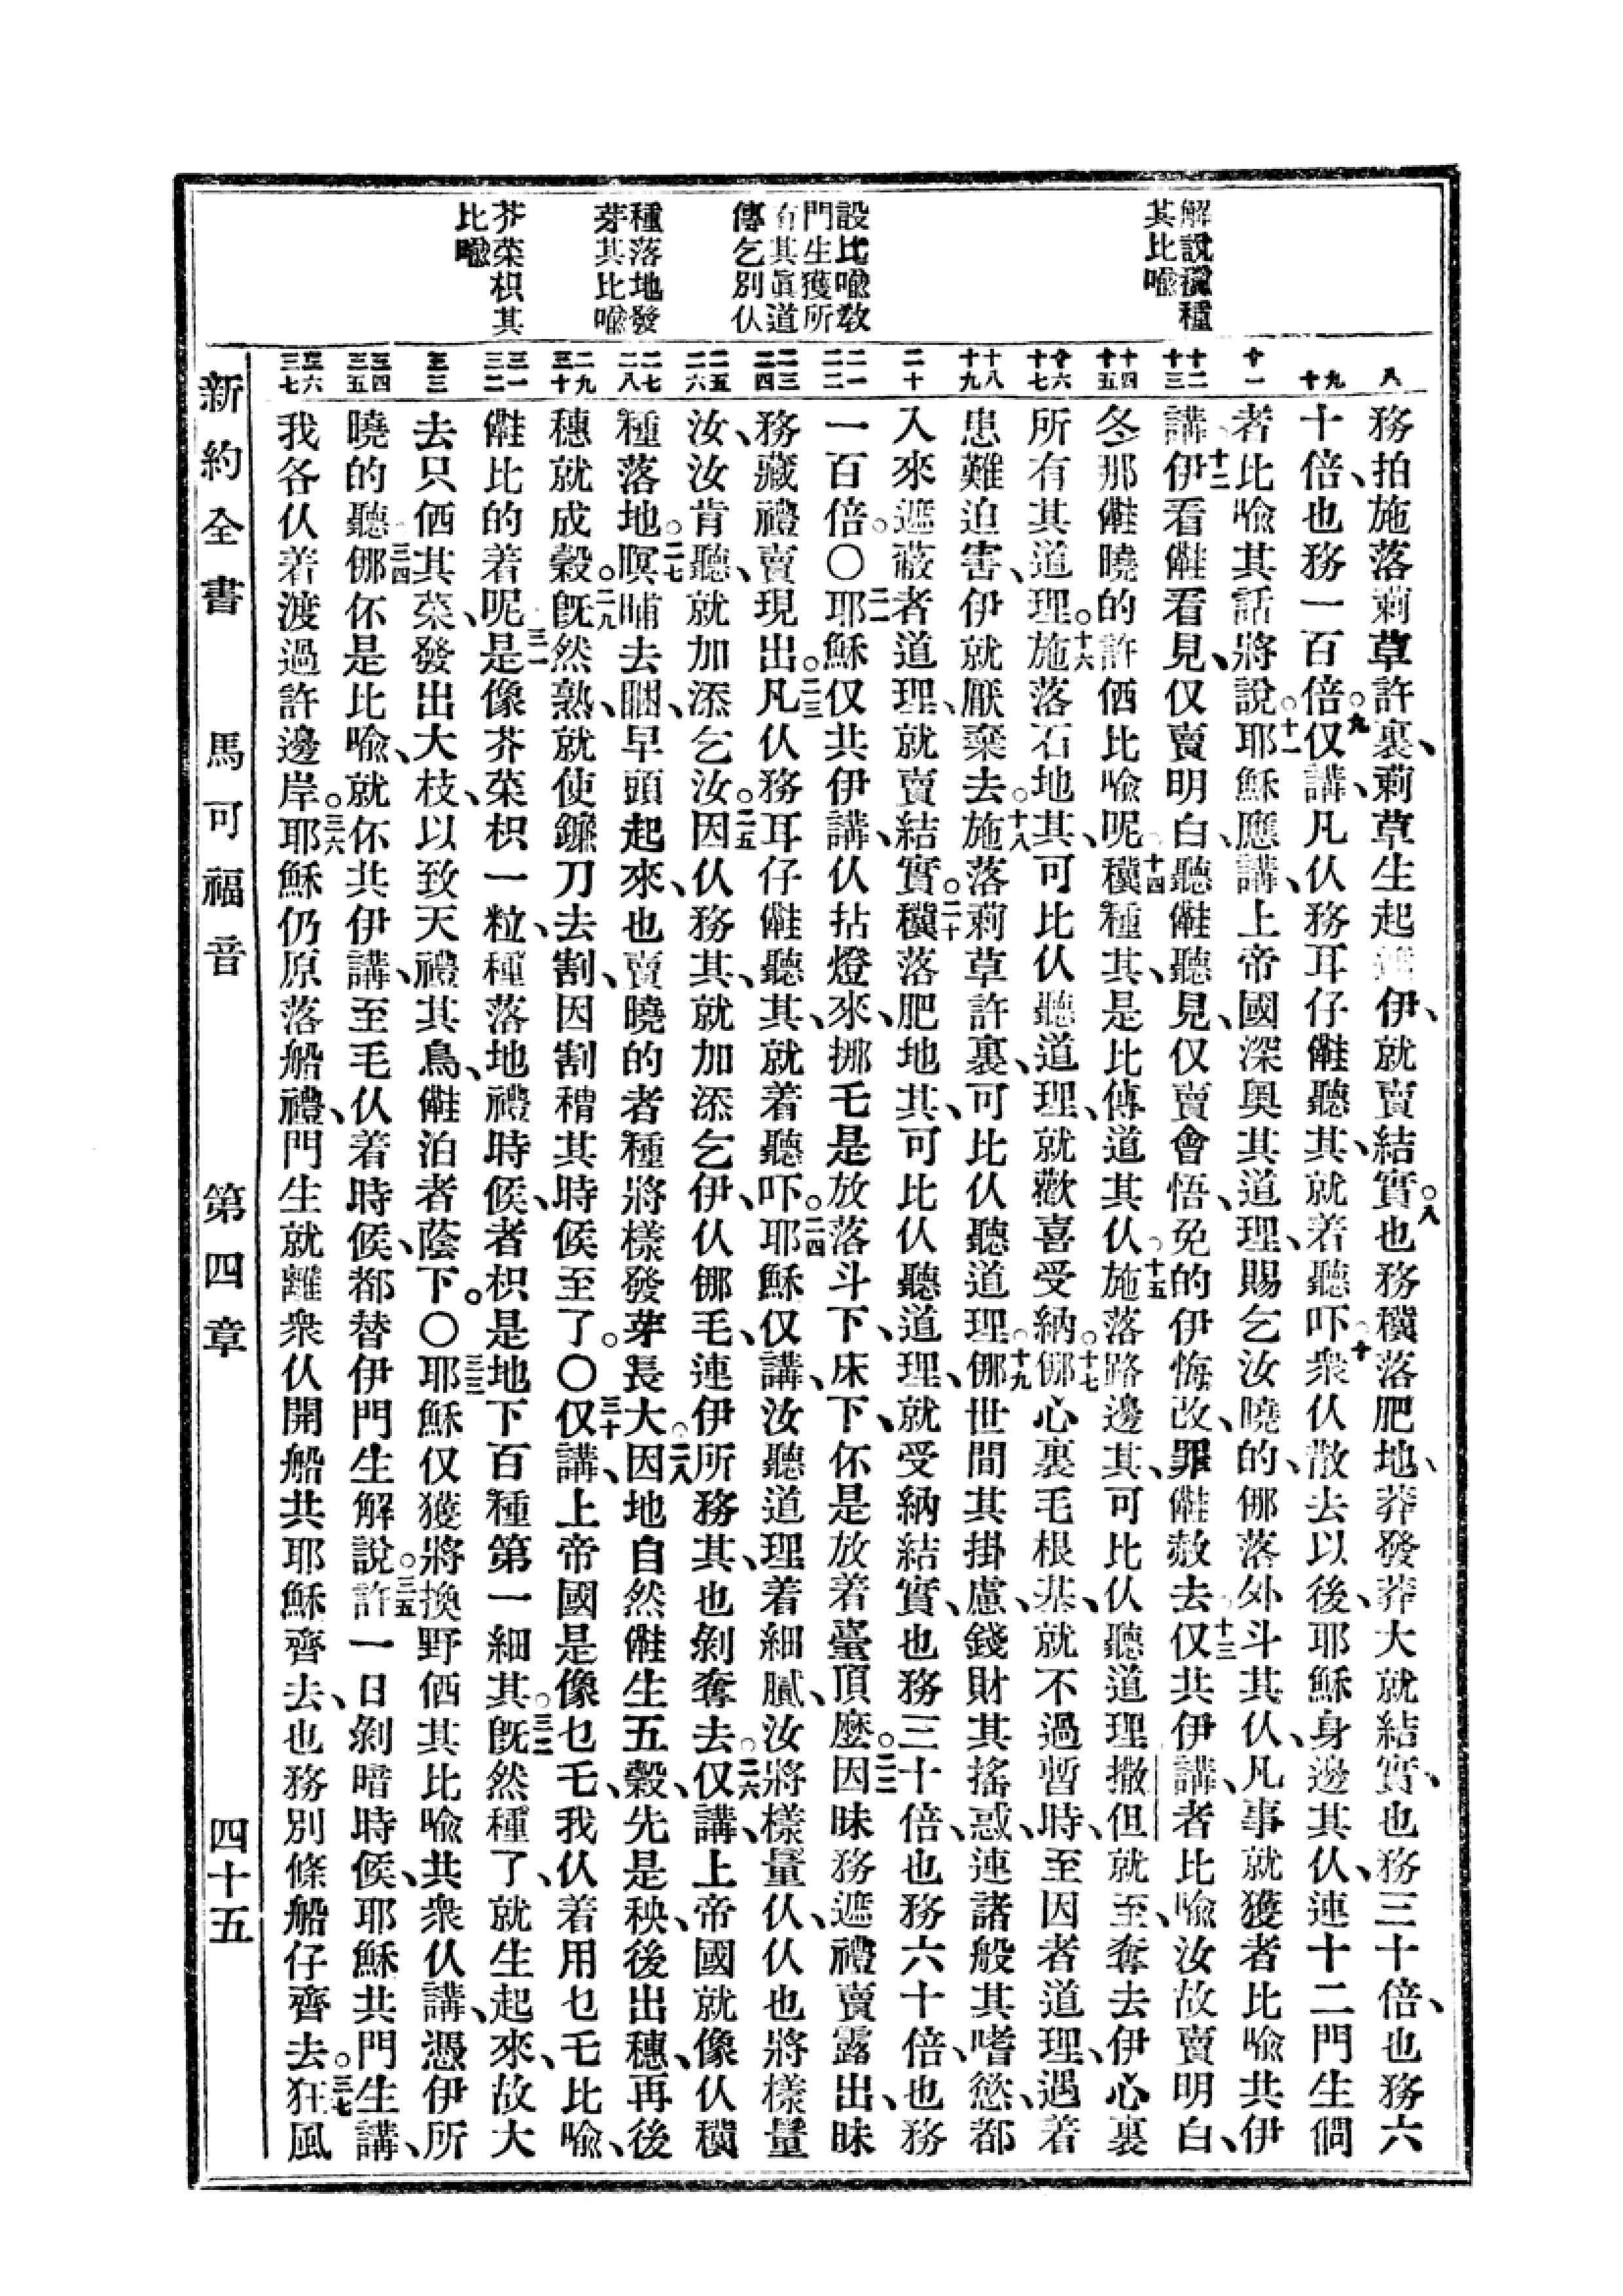 解說𥢷種
其比喻
設比喻敎
門生獲所
有其眞道
傳乞別仈
種落地發
芽其比喻
芥菜枳其
比喻
八
九 十
十一
十二 十三
十四 十五
十六 十七
十八 十九
二十
二一 二二
二三 二四
二五 二六
二七 二八
二九 三十
三一 三二
三三
三四 三五
三六 三七
務拍施落莿草許裏、莿草生起 伊、就賣結實。八也務𥢷落肥地、莽發莽大就結實、也務三十倍、也務六
十倍、也務一百倍。九仅講、凡仈務耳仔𠆧聽其、就着聽吓。十衆仈散去以後、耶穌身邊其仈、連十二門生問
者比喻其話將說。十一耶穌應講、上帝國深奧其道理、賜乞汝曉的、㑚落外斗其仈、凡事就獲者比喻共伊
講、十二伊看𠆧看見、仅賣明白、聽𠆧聽見、仅賣會悟、免的伊悔改、罪𠆧赦去。十三仅共伊講、者比喻汝故賣明白、
冬那𠆧曉的許㐰比喻呢。十四𥢷種其、是比傳道其仈。十五施落路邊其、可比仈聽道理、撒但就至、奪去伊心裏
所有其道理。十六施落石地其、可比仈聽道理、就歡喜受納。十七㑚心裏毛根基、就不過暫時、至因者道理、遇着
患難迫害、伊就厭棄去。十八施落莿草許裏、可比仈聽道理。十九㑚世間其掛慮、錢財其搖惑、連諸般其嗜慾、都
入來遮蔽者道理、就賣結實。二十𥢷落肥地其、可比仈聽道理、就受納結實、也務三十倍、也務六十倍、也務
一百倍。〇二一耶穌仅共伊講、仈拈燈來、挪乇是放落斗下、床下、伓是放着臺頂麽。二二因昧務遮禮賣露出、昧
務藏禮賣現出。二三凡仈務耳仔𠆧聽其、就着聽吓。二四耶穌仅講、汝聽道理着細膩、汝將樣量仈、仈也將樣量
汝、汝肯聽、就加添乞汝。二五因仈務其、就加添乞伊、仈㑚毛、連伊所務其、也剝奪去。二六仅講、上帝國就像仈𥢷
種落地。二七暝晡去睏、早頭起來、也賣曉的者種將樣發芽長大。二八因地自然𠆧生五穀、先是秧、後出穗、再後
穗就成穀。二九旣然熟、就使鐮刀去割、因割稽其時候至了。〇三十仅講、上帝國是像乜乇、我仈着用乜乇比喻、
𠆧比的着呢。三一是像芥菜枳一粒、種落地禮時候、者枳是地下百種第一細其。三二旣然種了、就生起來、故大
去只㐰其菜、發出大枝、以致天禮其鳥、𠆧泊者蔭下。〇三三耶穌仅獲將換野㐰其比喻、共衆仈講、憑伊所
曉的聽。三四㑚伓是比喻、就伓共伊講、至毛仈着時候、都替伊門生解說。三五許一日剝暗時候、耶穌共門生講、
我各仈着渡過許邊岸。三六耶穌仍原落船禮、門生就離衆仈開船共耶穌齊去、也務別條船仔齊去。三七狂風
新約全書 馬可福音 第四章 四十五